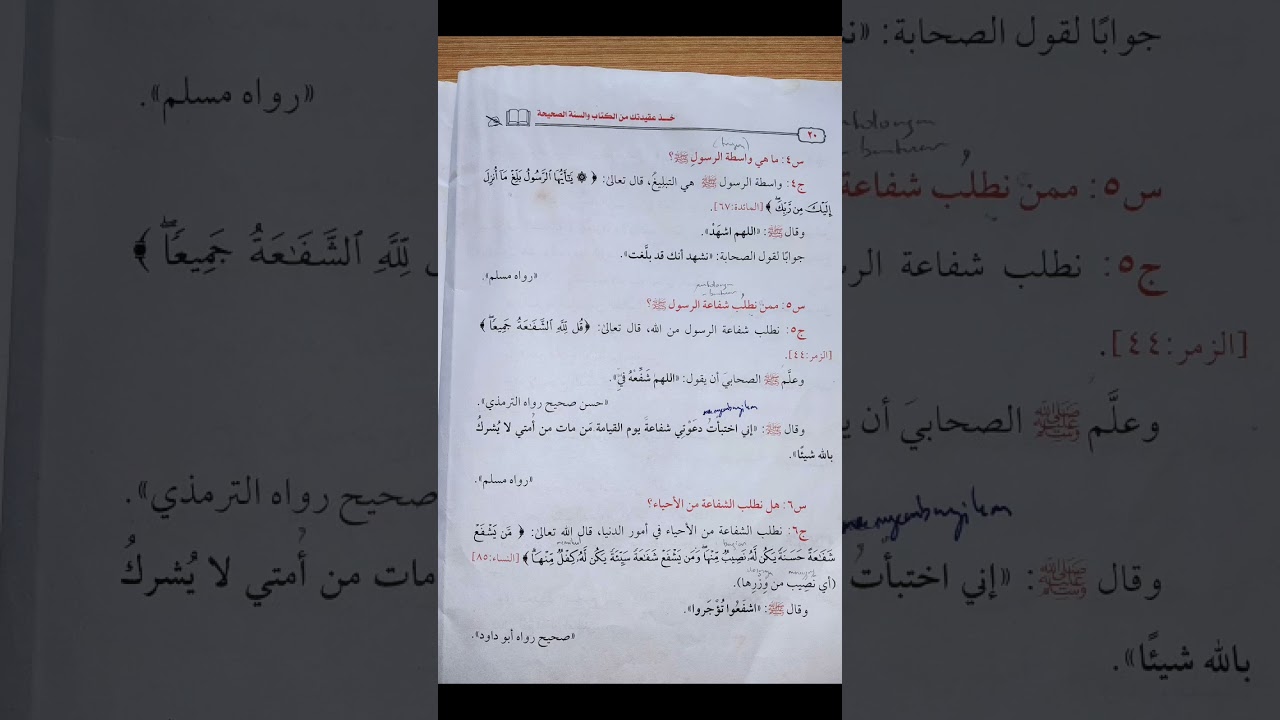 خـــذ عقيدتك من الكتاب والسنة الصحيحة
٢٠
س٤: ما هي واسطة الرسول ﷺ؟
ج٤: واسطة الرسول ﷺ هي التبليغُ، قال تعالىٰ: ﴿ ۞ يَـٰٓأَيُّهَا ٱلرَّسُولُ بَلِّغْ مَآ أُنزِلَ
إِلَيْكَ مِن رَّبِّكَ ۖ ﴾ [المائدة:٦٧].
وقال ﷺ: «اللهم اشهَدْ».
جوابًا لقول الصحابة: «نشهد أنك قد بلَّغت».
«رواه مسلم».
س٥: ممن نطلُب شفاعة الرسول ﷺ؟
ج٥: نطلب شفاعة الرسول من الله، قال تعالىٰ: ﴿قُل لِّلَّهِ ٱلشَّفَـٰعَةُ جَمِيعًا ۖ ﴾
[الزمر:٤٤].
وعلَّم ﷺ الصحابيَ أن يقول: «اللهم شَفِّعْهُ فيِّ».
«حسن صحيح رواه الترمذي».
menyembunyikan
وقال ﷺ: «إني اختبأتُ دعَوْتِي شفاعةً يوم القيامة مَن مات من أُمتي لا يُشركُ
بالله شيئًا».
«رواه مسلم».
س٦: هل نطلب الشفاعة من الأحياء؟
ج٦: نطلب الشفاعة من الأحياء في أمور الدنيا، قال الله تعالىٰ: ﴿ مَّن يَشْفَعْ
شَفَـٰعَةً حَسَنَةً يَكُن لَّهُۥ نَصِيبٌ مِّنْهَا ۖ وَمَن يَشْفَعْ شَفَـٰعَةً سَيِّئَةً يَكُن لَّهُۥ كِفْلٌ مِّنْهَا ۗ ﴾ [النساء:٨٥]
(أي نَصِيب من وِزْرِها).
وقال ﷺ: «اشفَعُوا تُؤْجَروا».
«صحيح رواه أبو داود».